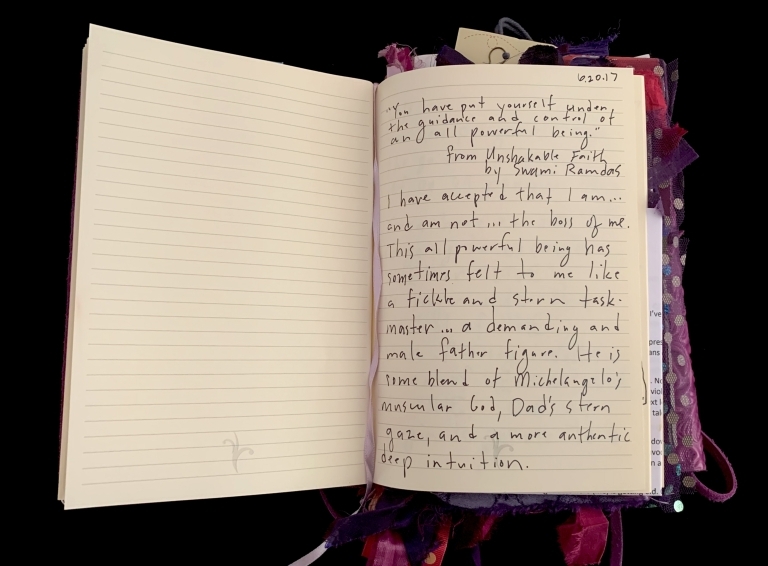 6.20.17
"You have put yourself under
the guidance and control of
an all powerful being."
from Unshakable Faith
by Swami Ramdas
I have accepted that I am...
and am not... the boss of me.
This all powerful being has
sometimes felt to me like
a fickle and stern task-
master... a demanding and
male father figure. He is
some blend of Michelangelo's
muscular God, Dad's stern
gaze, and a more authentic
deep intuition.
I've